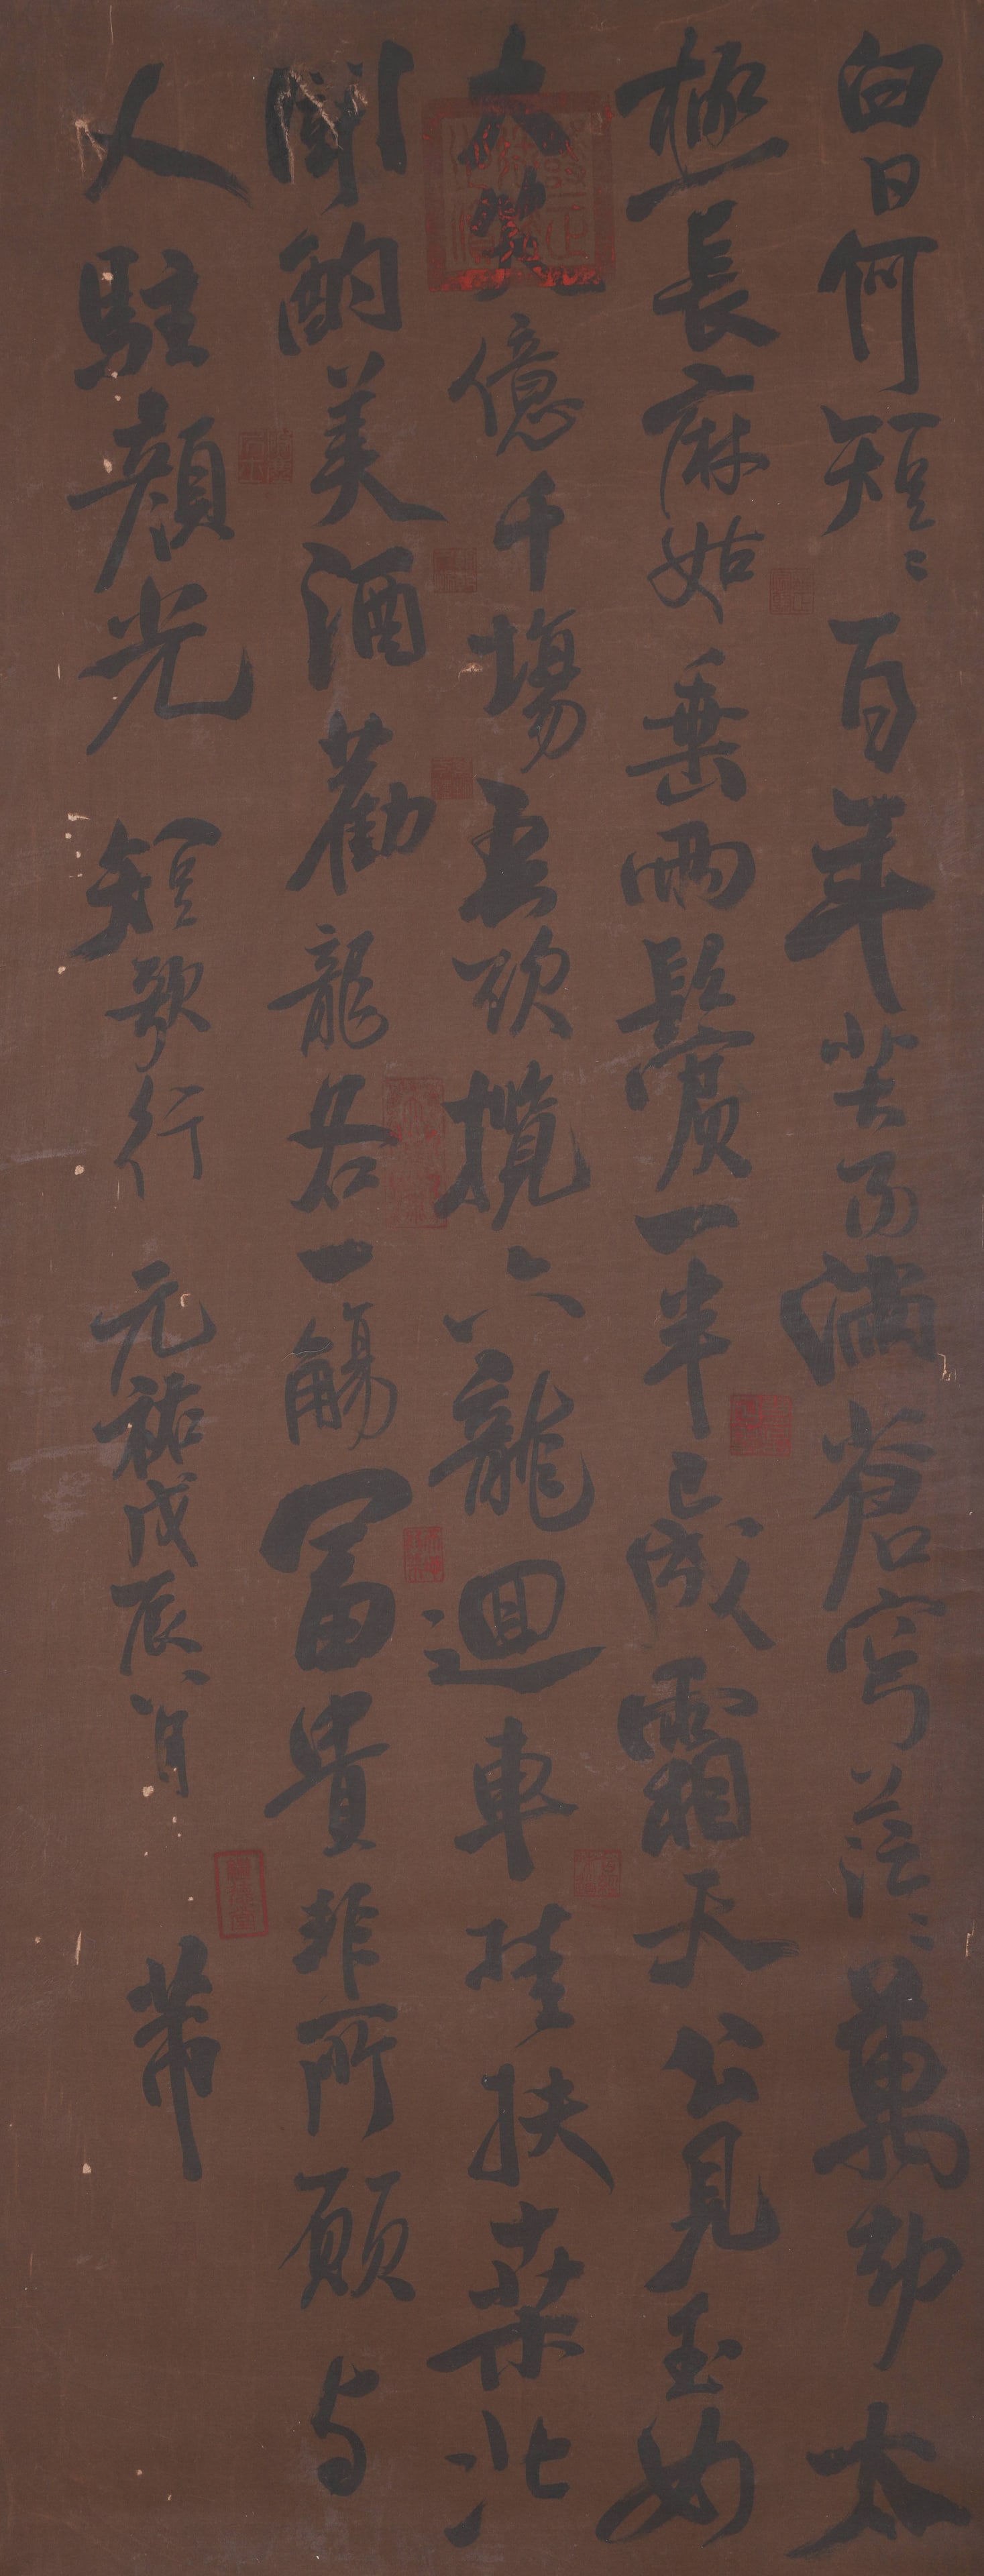 白日何短〻百年苦易滿蒼穹茫〻萬劫太
極長麻姑垂兩鬢一半已成霜天公見玉女
大笑億千場吾欲攬六龍迴車挂扶桑北
斗酌美酒勸龍各一觴富貴非所願与
人駐顏光 短歌行 元祐戊辰八月 芾